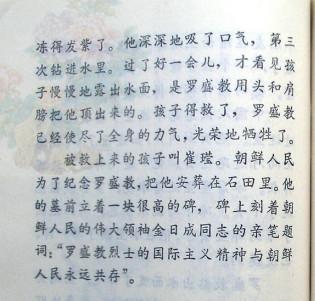 冻得发紫了。他深深地吸了口气，第三
次钻进水里。过了好一会儿，才看见孩
子慢慢地露出水面，是罗盛教用头和肩
膀把他顶出来的。孩子得救了，罗盛教
已经使尽了全身的力气，光荣地牺牲了。
被救上来的孩子叫崔莹。朝鲜人民
为了纪念罗盛教，把他安葬在石田里。他
的墓前立着一块很高的碑，碑上刻着朝
鲜人民的伟大领袖金日成同志的亲笔题
词：“罗盛教烈士的国际主义精神与朝鲜
人民永远共存”。